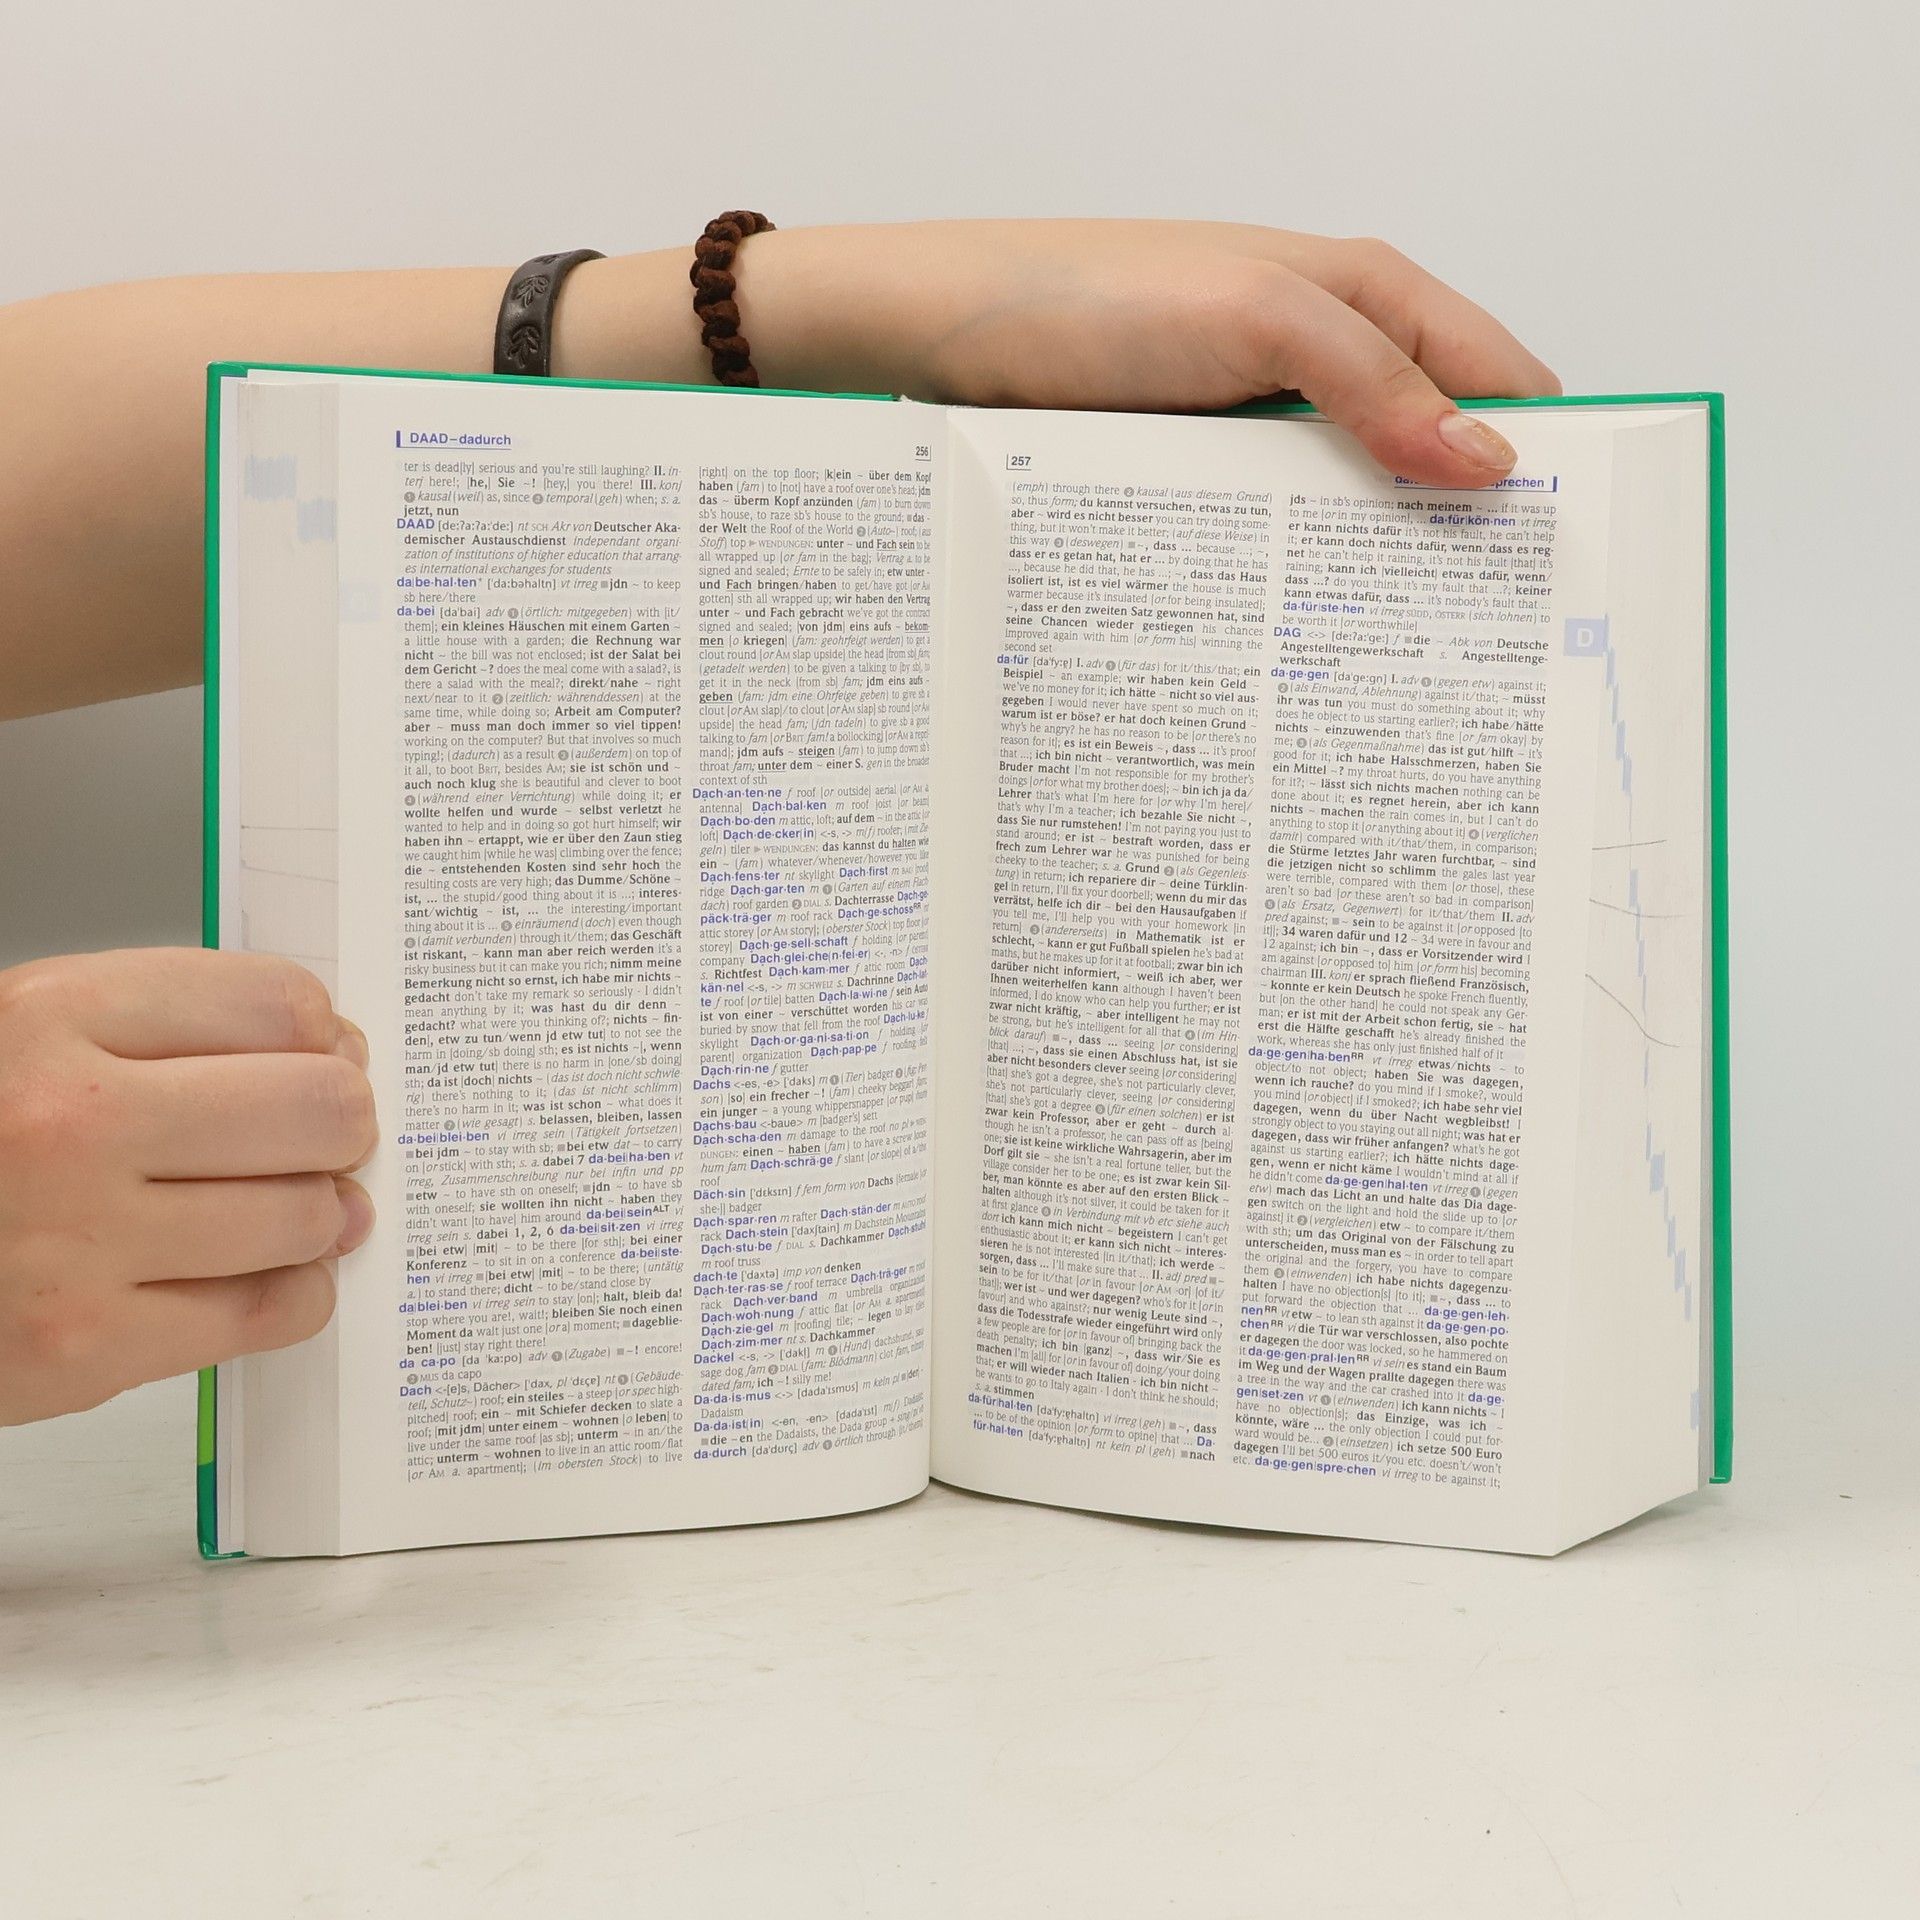 DAAD–dadurch
256
ter is dead[ly] serious and you're still laughing? II. in-
terj here!; [he,] Sie ~! [hey,] you there! III. konj
❶ kausal (weil) as, since ❷ temporal (geh) when; s. a.
jetzt, nun
DAAD [de:ʔa:ʔa:'de:] nt SCH Akr von Deutscher Aka-
demischer Austauschdienst independant organi-
zation of institutions of higher education that arrang-
es international exchanges for students
da|be·hal·ten* ['da:bəhaltn] vt irreg ■jdn ~ to keep
sb here/there
da·bei [da'bai] adv ❶ (örtlich: mitgegeben) with [it/
them]; ein kleines Häuschen mit einem Garten ~
a little house with a garden; die Rechnung war
nicht ~ the bill was not enclosed; ist der Salat bei
dem Gericht ~? does the meal come with a salad?, is
there a salad with the meal?; direkt/nahe ~ right
next/near to it ❷ (zeitlich: währenddessen) at the
same time, while doing so; Arbeit am Computer?
aber ~ muss man doch immer so viel tippen!
working on the computer? But that involves so much
typing!; (dadurch) as a result ❸ (außerdem) on top of
it all, to boot BRIT, besides AM; sie ist schön und ~
auch noch klug she is beautiful and clever to boot
❹ (während einer Verrichtung) while doing it; er
wollte helfen und wurde ~ selbst verletzt he
wanted to help and in doing so got hurt himself; wir
haben ihn ~ ertappt, wie er über den Zaun stieg
we caught him [while he was] climbing over the fence;
die ~ entstehenden Kosten sind sehr hoch the
resulting costs are very high; das Dumme/Schöne ~
ist, ... the stupid/good thing about it is ...; interes-
sant/wichtig ~ ist, ... the interesting/important
thing about it is ... ❺ einräumend (doch) even though
❻ (damit verbunden) through it/them; das Geschäft
ist riskant, ~ kann man aber reich werden it's a
risky business but it can make you rich; nimm meine
Bemerkung nicht so ernst, ich habe mir nichts ~
gedacht don't take my remark so seriously - I didn't
mean anything by it; was hast du dir denn ~
gedacht? what were you thinking of?; nichts ~ fin-
den[, etw zu tun/wenn jd etw tut] to not see the
harm in [doing/sb doing] sth; es ist nichts ~[, wenn
man/jd etw tut] there is no harm in [one/sb doing]
sth; da ist [doch] nichts ~ (das ist doch nicht schwie-
rig) there's nothing to it; (das ist nicht schlimm)
there's no harm in it; was ist schon ~ what does it
matter ❼ (wie gesagt) s. belassen, bleiben, lassen
da·bei|blei·ben vi irreg sein (Tätigkeit fortsetzen)
■bei jdm ~ to stay with sb; ■bei etw dat ~ to carry
on [or stick] with sth; s. a. dabei 7 da·bei|ha·ben vt
irreg, Zusammenschreibung nur bei infin und pp
■etw ~ to have sth on oneself; ■jdn ~ to have sb
with oneself; sie wollten ihn nicht ~ haben they
didn't want [to have] him around da·bei|seinALT vi
irreg sein s. dabei 1, 2, 6 da·bei|sit·zen vi irreg
■[bei etw] [mit] ~ to be there [for sth]; bei einer
Konferenz ~ to sit in on a conference da·bei|ste-
hen vi irreg ■[bei etw] [mit] ~ to be there; (untätig
a.) to stand there; dicht ~ to be/stand close by
da|blei·ben vi irreg sein to stay [on]; halt, bleib da!
stop where you are!, wait!; bleiben Sie noch einen
Moment da wait just one [or a] moment; ■dageblie-
ben! [just] stay right there!
da ca·po [da 'ka:po] adv ❶ (Zugabe) ■~! encore!
❷ MUS da capo
Dach <-[e]s, Dächer> ['dax, pl 'dɛçɐ] nt ❶ (Gebäude-
teil, Schutz~) roof; ein steiles ~ a steep [or spec high-
pitched] roof; ein ~ mit Schiefer decken to slate a
roof; [mit jdm] unter einem ~ wohnen [o leben] to
live under the same roof [as sb]; unterm ~ in an/the
attic; unterm ~ wohnen to live in an attic room/flat
[or AM a. apartment]; (im obersten Stock) to live
[right] on the top floor; [k]ein ~ über dem Kopf
haben (fam) to [not] have a roof over one's head; jdm
das ~ überm Kopf anzünden (fam) to burn down
sb's house, to raze sb's house to the ground; ■das ~
der Welt the Roof of the World ❷ (Auto~) roof; (aus
Stoff) top ▶ WENDUNGEN: unter ~ und Fach sein to be
all wrapped up [or fam in the bag]; Vertrag a. to be
signed and sealed; Ernte to be safely in; etw unter ~
und Fach bringen/haben to get/have got [or AM
gotten] sth all wrapped up; wir haben den Vertrag
unter ~ und Fach gebracht we've got the contract
signed and sealed; [von jdm] eins aufs ~ bekom-
men [o kriegen] (fam: geohrfeigt werden) to get a
clout round [or AM slap upside] the head [from sb] fam;
(getadelt werden) to be given a talking to [by sb], to
get it in the neck [from sb] fam; jdm eins aufs ~
geben (fam: jdm eine Ohrfeige geben) to give sb a
clout [or AM slap]/to clout [or AM slap] sb round [or AM
upside] the head fam; (jdn tadeln) to give sb a good
talking to fam [or BRIT fam! a bollocking] [or AM a repri-
mand]; jdm aufs ~ steigen (fam) to jump down sb's
throat fam; unter dem ~ einer S. gen in the broader
context of sth
Dach·an·ten·ne f roof [or outside] aerial [or AM a.
antenna] Dach·bal·ken m roof joist [or beam]
Dach·bo·den m attic, loft; auf dem ~ in the attic [or
loft] Dach·de·cker(in) <-s, -> m(f) roofer; (mit Zie-
geln) tiler ▶ WENDUNGEN: das kannst du halten wie
ein ~ (fam) whatever/whenever/however you like
Dach·fens·ter nt skylight Dach·first m BAU [roof]
ridge Dach·gar·ten m ❶ (Garten auf einem Flach-
dach) roof garden ❷ DIAL s. Dachterrasse Dach·ge-
päck·trä·ger m roof rack Dach·ge·schossRR nt
attic storey [or AM story]; (oberster Stock) top floor [or
storey] Dach·ge·sell·schaft f holding [or parent]
company Dach·glei·che(n·fei·er)
s. Richtfest Dach·kam·mer f attic room Dach-
kän·nel <-s, -> m SCHWEIZ s. Dachrinne Dach·lat-
te f roof [or tile] batten Dach·la·wi·ne f sein Auto
ist von einer ~ verschüttet worden his car was
buried by snow that fell from the roof Dach·lu·ke f
skylight Dach·or·ga·ni·sa·ti·on f holding [or
parent] organization Dach·pap·pe f roofing felt
Dach·rin·ne f gutter
Dachs <-es, -e> ['daks] m ❶ (Tier) badger ❷ (fig: Per-
son) [so] ein frecher ~! (fam) cheeky beggar! fam;
ein junger ~ a young whippersnapper [or pup] hum
Dachs·bau <-baue> m [badger's] sett
Dach·scha·den m damage to the roof no pl ▶ WEN-
DUNGEN: einen ~ haben (fam) to have a screw loose
hum fam Dach·schrä·ge f slant [or slope] of a/the
roof
Däch·sin ['dɛksɪn] f fem form von Dachs [female [or
she-]] badger
Dach·spar·ren m rafter Dach·stän·der m AUTO roof
rack Dach·stein ['daxʃtain] m Dachstein Mountains
Dach·stu·be f DIAL s. Dachkammer Dach·stuhl
m roof truss
dach·te ['daxtə] imp von denken
Dach·ter·ras·se f roof terrace Dach·trä·ger m roof
rack Dach·ver·band m umbrella organization
Dach·woh·nung f attic flat [or AM a. apartment]
Dach·zie·gel m [roofing] tile; ~ legen to lay tiles
Dach·zim·mer nt s. Dachkammer
Dackel <-s, -> ['dakl] m ❶ (Hund) dachshund, sau-
sage dog fam ❷ DIAL (fam: Blödmann) clot fam, ninny
dated fam; ich ~! silly me!
Da·da·is·mus <-> [dada'ɪsmus] m kein pl ■der ~
Dadaism
Da·da·ist(in) <-en, -en> [dada'ɪst] m(f) Dadaist;
■die ~en the Dadaists, the Dada group + sing/pl vb
da·durch [da'durç] adv ❶ örtlich through [it/them]
257
sprechen
(emph) through there ❷ kausal (aus diesem Grund)
so, thus form; du kannst versuchen, etwas zu tun,
aber ~ wird es nicht besser you can try doing some-
thing, but it won't make it better; (auf diese Weise) in
this way ❸ (deswegen) ■~, dass ... because ...; ~,
dass er es getan hat, hat er ... by doing that he has
..., because he did that, he has ...; ~, dass das Haus
isoliert ist, ist es viel wärmer the house is much
warmer because it's insulated [or for being insulated];
~, dass er den zweiten Satz gewonnen hat, sind
seine Chancen wieder gestiegen his chances
improved again with him [or form his] winning the
second set
da·für [da'fy:ɐ] I. adv ❶ (für das) for it/this/that; ein
Beispiel ~ an example; wir haben kein Geld ~
we've no money for it; ich hätte ~ nicht so viel aus-
gegeben I would never have spent so much on it;
warum ist er böse? er hat doch keinen Grund ~
why's he angry? he has no reason to be [or there's no
reason for it]; es ist ein Beweis ~, dass ... it's proof
that ...; ich bin nicht ~ verantwortlich, was mein
Bruder macht I'm not responsible for my brother's
doings [or for what my brother does]; ~ bin ich ja da/
Lehrer that's what I'm here for [or why I'm here]/
that's why I'm a teacher; ich bezahle Sie nicht ~,
dass Sie nur rumstehen! I'm not paying you just to
stand around; er ist ~ bestraft worden, dass er
frech zum Lehrer war he was punished for being
cheeky to the teacher; s. a. Grund ❷ (als Gegenleis-
tung) in return; ich repariere dir ~ deine Türklin-
gel in return, I'll fix your doorbell; wenn du mir das
verrätst, helfe ich dir ~ bei den Hausaufgaben if
you tell me, I'll help you with your homework [in
return] ❸ (andererseits) in Mathematik ist er
schlecht, ~ kann er gut Fußball spielen he's bad at
maths, but he makes up for it at football; zwar bin ich
darüber nicht informiert, ~ weiß ich aber, wer
Ihnen weiterhelfen kann although I haven't been
informed, I do know who can help you further; er ist
zwar nicht kräftig, ~ aber intelligent he may not
be strong, but he's intelligent for all that ❹ (im Hin-
blick darauf) ■~, dass ... seeing [or considering]
[that] ...; ~, dass sie einen Abschluss hat, ist sie
aber nicht besonders clever seeing [or considering]
[that] she's got a degree, she's not particularly clever,
she's not particularly clever, seeing [or considering]
[that] she's got a degree ❺ (für einen solchen) er ist
zwar kein Professor, aber er geht ~ durch al-
though he isn't a professor, he can pass off as [being]
one; sie ist keine wirkliche Wahrsagerin, aber im
Dorf gilt sie ~ she isn't a real fortune teller, but the
village consider her to be one; es ist zwar kein Sil-
ber, man könnte es aber auf den ersten Blick ~
halten although it's not silver, it could be taken for it
at first glance ❻ in Verbindung mit vb etc siehe auch
dort ich kann mich nicht ~ begeistern I can't get
enthusiastic about it; er kann sich nicht ~ interes-
sieren he is not interested [in it/that]; ich werde ~
sorgen, dass ... I'll make sure that ... II. adj pred ■~
sein to be for it/that [or in favour [or AM -or] [of it/
that]]; wer ist ~ und wer dagegen? who's for it [or in
favour] and who against?; nur wenig Leute sind ~,
dass die Todesstrafe wieder eingeführt wird only
a few people are for [or in favour of] bringing back the
death penalty; ich bin [ganz] ~, dass wir/Sie es
machen I'm [all] for [or in favour of] doing/your doing
that; er will wieder nach Italien - ich bin nicht ~
he wants to go to Italy again - I don't think he should;
s. a. stimmen
da·für|hal·ten [da'fy:ɐhaltn] vi irreg (geh) ■~, dass
... to be of the opinion [or form to opine] that ... Da-
für·hal·ten [da'fy:ɐhaltn] nt kein pl (geh) ■nach
jds ~ in sb's opinion; nach meinem ~ ... if it was up
to me [or in my opinion], ... da·für|kön·nen vt irreg
er kann nichts dafür it's not his fault, he can't help
it; er kann doch nichts dafür, wenn/dass es reg-
net he can't help it raining, it's not his fault [that] it's
raining; kann ich [vielleicht] etwas dafür, wenn/
dass ...? do you think it's my fault that ...?; keiner
kann etwas dafür, dass ... it's nobody's fault that ...
da·für|ste·hen vi irreg SÜDD, ÖSTERR (sich lohnen) to
be worth it [or worthwhile]
DAG <-> [de:ʔa:'ge:] f ■die ~ Abk von Deutsche
Angestelltengewerkschaft s. Angestelltenge-
werkschaft
da·ge·gen [da'ge:gn] I. adv ❶ (gegen etw) against it;
❷ (als Einwand, Ablehnung) against it/that; ~ müsst
ihr was tun you must do something about it; why
does he object to us starting earlier?; ich habe/hätte
nichts ~ einzuwenden that's fine [or fam okay] by
me; ❸ (als Gegenmaßnahme) das ist gut/hilft ~ it's
good for it; ich habe Halsschmerzen, haben Sie
ein Mittel ~? my throat hurts, do you have anything
for it?; ~ lässt sich nichts machen nothing can be
done about it; es regnet herein, aber ich kann
nichts ~ machen the rain comes in, but I can't do
anything to stop it [or anything about it] ❹ (verglichen
damit) compared with it/that/them, in comparison;
die Stürme letztes Jahr waren furchtbar, ~ sind
die jetzigen nicht so schlimm the gales last year
were terrible, compared with them [or those], these
aren't so bad [or these aren't so bad in comparison]
❺ (als Ersatz, Gegenwert) for it/that/them II. adv
pred against; ■~ sein to be against it [or opposed [to
it]]; 34 waren dafür und 12 ~ 34 were in favour and
12 against; ich bin ~, dass er Vorsitzender wird I
am against [or opposed to] him [or form his] becoming
chairman III. konj er sprach fließend Französisch,
~ konnte er kein Deutsch he spoke French fluently,
but [on the other hand] he could not speak any Ger-
man; er ist mit der Arbeit schon fertig, sie ~ hat
erst die Hälfte geschafft he's already finished the
work, whereas she has only just finished half of it
da·ge·gen|ha·benRR vt irreg etwas/nichts ~ to
object/to not object; haben Sie was dagegen,
wenn ich rauche? do you mind if I smoke?, would
you mind [or object] if I smoked?; ich habe sehr viel
dagegen, wenn du über Nacht wegbleibst! I
strongly object to you staying out all night; was hat er
dagegen, dass wir früher anfangen? what's he got
against us starting earlier?; ich hätte nichts dage-
gen, wenn er nicht käme I wouldn't mind at all if
he didn't come da·ge·gen|hal·ten vt irreg ❶ (gegen
etw) mach das Licht an und halte das Dia dage-
gen switch on the light and hold the slide up to [or
against] it ❷ (vergleichen) etw ~ to compare it/them
with sth; um das Original von der Fälschung zu
unterscheiden, muss man es ~ in order to tell apart
the original and the forgery, you have to compare
them ❸ (einwenden) ich habe nichts dagegenzu-
halten I have no objection[s] [to it]; ■~, dass ... to
put forward the objection that ... da·ge·gen·leh-
nenRR vt etw ~ to lean sth against it da·ge·gen·po-
chenRR vi die Tür war verschlossen, also pochte
er dagegen the door was locked, so he hammered on
it da·ge·gen·pral·lenRR vi sein es stand ein Baum
im Weg und der Wagen prallte dagegen there was
a tree in the way and the car crashed into it da·ge-
gen|set·zen vt ❶ (einwenden) ich kann nichts ~ I
have no objection[s]; das Einzige, was ich ~
könnte, wäre ... the only objection I could put for-
ward would be... ❷ (einsetzen) ich setze 500 Euro
dagegen I'll bet 500 euros it/you etc. doesn't/won't
etc. da·ge·gen|spre·chen vi irreg to be against it;
D